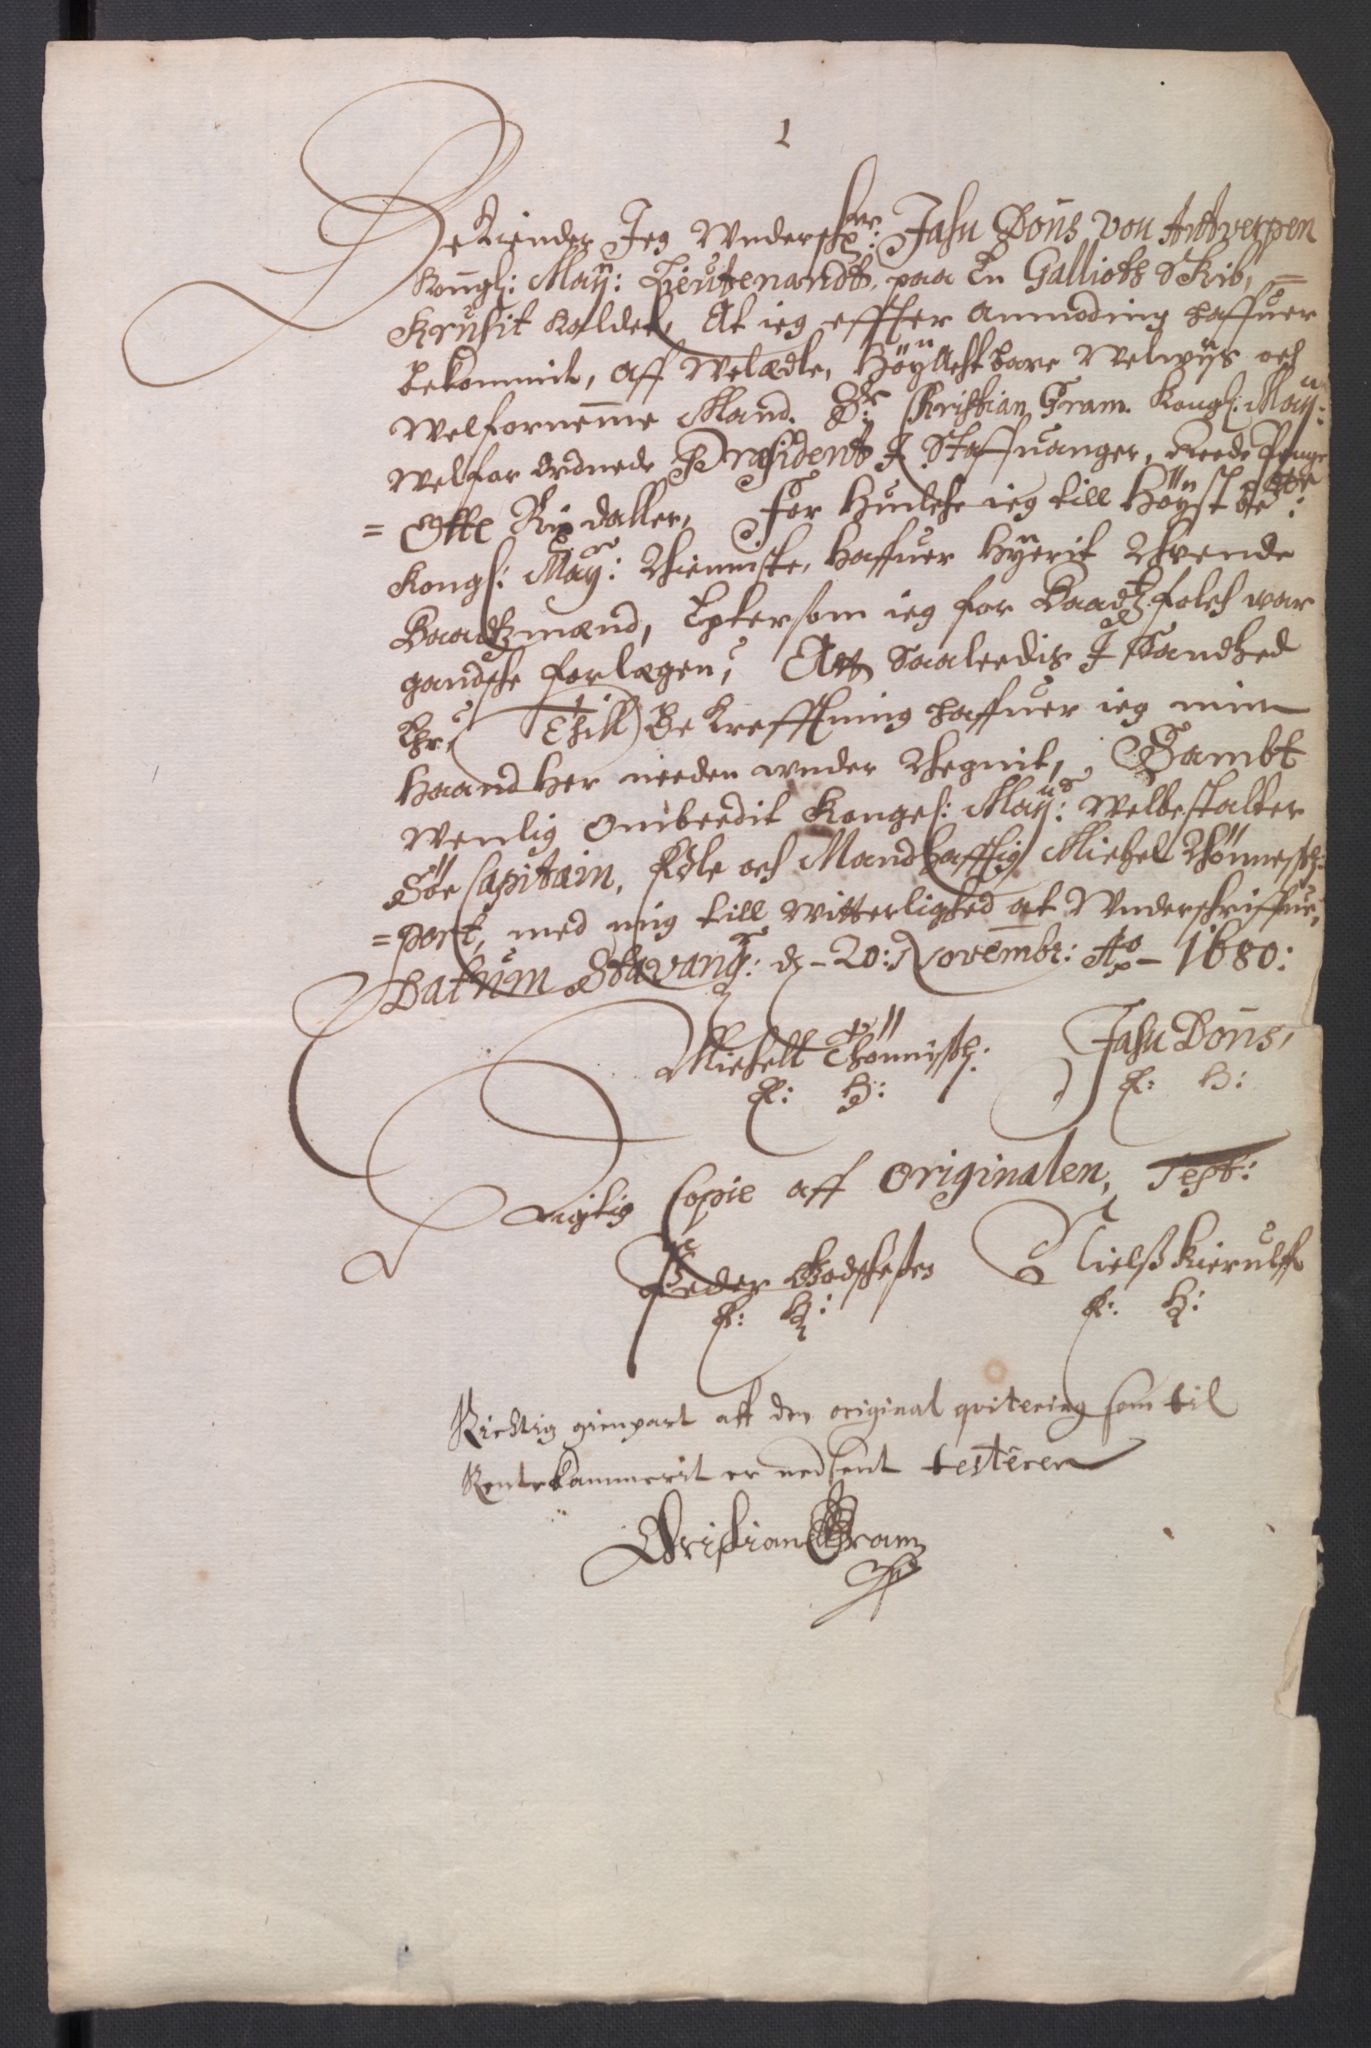 1
Bekiender Jeg Undersch: Jahn Doüs von Antverpen
Kongl: May: Lieutenandt, paa En Galliots Skib,=
Krusit kaldet, At ieg effter Anmoding haffuer
bekommit, aff Welædle, Höyachtbare Welwÿs och
Welfornemme Mand. Hr: Christian Gram. Kongl: May:
Welforordnede Præsident J Staffuanger, Reede Penge
= Otte Rixdaller, For Huilche ieg till Höyst
Kongl: May: Thienniste, haffuer Hÿerit Thvende
Baadtzmænd, Epter som ieg for Baadtzfolch war
gandsche forlægen, Att Saaleedis J Sandhed
Er, Thill Bekrefftning haffuer ieg min
Haand Her needen under Thegnit, Sambt
Wenlig Ombeedit Kongel: May: Welbestalter
Söe Capitain, Edle och Mandhafftig Michel Thönnesch:
=port, med mig till Witterlighed at Underschriffue,
Datum Stavang: d - 20: Novembr: Ao - 1680:
Michell Thönnisch: Jahn Doüs,
E: H: E: H:
Rigtig Copie aff Originalen, Test:
Peder Godtschesen Nielß Kierulff
E: H: E: H:
Richtig gienpart aff den original qvitering som til
Rentekammerit er nedsent testerer
Christian Gram